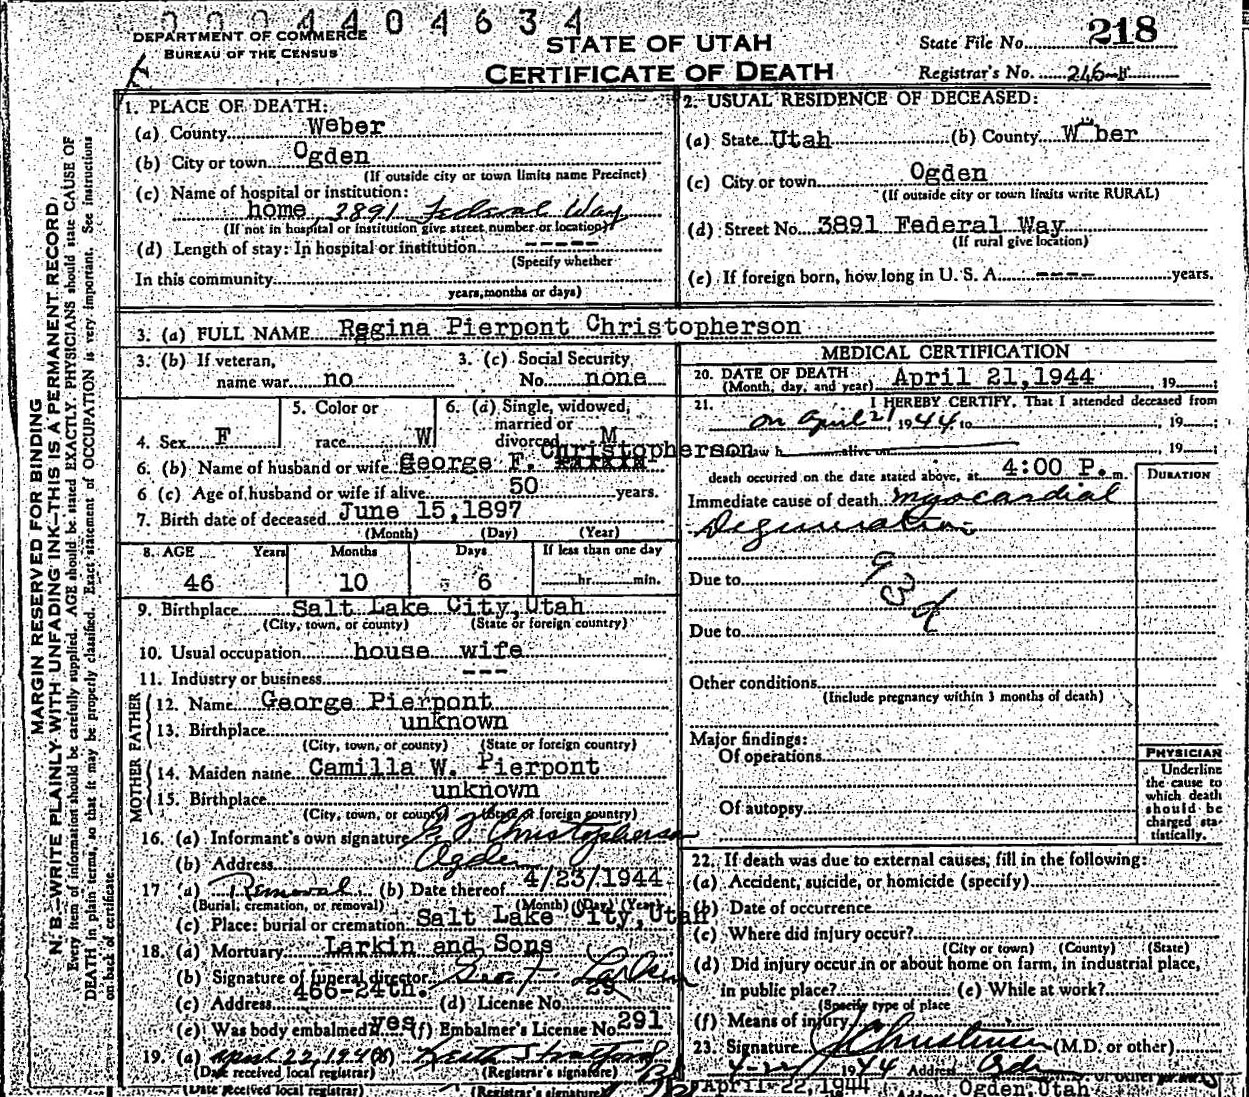 0004404634
DEPARTMENT OF COMMERCE
BUREAU OF THE CENSUS
STATE OF UTAH
CERTIFICATE OF DEATH
State File No. 218
Registrar's No. 246
MARGIN RESERVED FOR BINDING
N. B.—WRITE PLAINLY WITH UNFADING INK—THIS IS A PERMANENT RECORD.
Every item of information should be carefully supplied. AGE should be stated EXACTLY. PHYSICIANS should state CAUSE OF
DEATH in plain terms, so that it may be properly classified. Exact statement of OCCUPATION is very important. See instructions
on back of certificate.
1. PLACE OF DEATH:
(a) County Weber
(b) City or town Ogden
(If outside city or town limits name Precinct)
(c) Name of hospital or institution:
home 3891 Federal Way
(If not in hospital or institution give street number or location)
(d) Length of stay: In hospital or institution -----
(Specify whether
In this community
years, months or days)
2. USUAL RESIDENCE OF DECEASED:
(a) State Utah (b) County Weber
(c) City or town Ogden
(If outside city or town limits write RURAL)
(d) Street No. 3891 Federal Way
(If rural give location)
(e) If foreign born, how long in U. S. A. ---- years.
3. (a) FULL NAME Regina Pierpont Christopherson
3. (b) If veteran,
name war no
3. (c) Social Security
No. none
4. Sex F
5. Color or
race W
6. (a) Single, widowed,
married or
divorced M
Christopherson
6. (b) Name of husband or wife George F.
6 (c) Age of husband or wife if alive 50 years.
7. Birth date of deceased June 15, 1897
(Month) (Day) (Year)
8. AGE Years Months Days If less than one day
46 10 6 hr. min.
9. Birthplace Salt Lake City, Utah
(City, town, or county) (State or foreign country)
10. Usual occupation house wife
11. Industry or business ---
FATHER
12. Name George Pierpont
13. Birthplace unknown
(City, town, or county) (State or foreign country)
MOTHER
14. Maiden name Camilla W. Pierpont
15. Birthplace unknown
(City, town, or county) (State or foreign country)
16. (a) Informant's own signature G. F. Christopherson
(b) Address Ogden
17 (a) Removal (b) Date thereof 4/23/1944
(Burial, cremation, or removal) (Month) (Day) (Year)
(c) Place: burial or cremation Salt Lake City, Utah
18. (a) Mortuary Larkin and Sons
(b) Signature of funeral director Geo. F. Larkin
(c) Address 466-24th. (d) License No. 29
(e) Was body embalmed? yes (f) Embalmer's License No. 291
19. (a) April 22, 1944 (b) Keith Stratford
(Date received local registrar) (Registrar's signature)
(Date received local registrar) (Registrar's signature)
MEDICAL CERTIFICATION
20. DATE OF DEATH
(Month, day, and year) April 21, 1944, 19 ;
21. I HEREBY CERTIFY, That I attended deceased from
on April 21 1944 to , 19 ;
saw h alive on , 19 ;
death occurred on the date stated above, at 4:00 P. m.
DURATION
Immediate cause of death myocardial
Degeneration
93d
Due to
Due to
Other conditions
(Include pregnancy within 3 months of death)
Major findings:
Of operations
Of autopsy
PHYSICIAN
Underline
the cause to
which death
should be
charged sta-
tistically.
22. If death was due to external causes, fill in the following:
(a) Accident, suicide, or homicide (specify)
(b) Date of occurrence
(c) Where did injury occur?
(City or town) (County) (State)
(d) Did injury occur in or about home on farm, in industrial place,
in public place? (e) While at work?
(Specify type of place
(f) Means of injury
23. Signature Christensen (M.D. or other)
4-22 1944 Address Ogden
April 22, 1944 Address Ogden, Utah